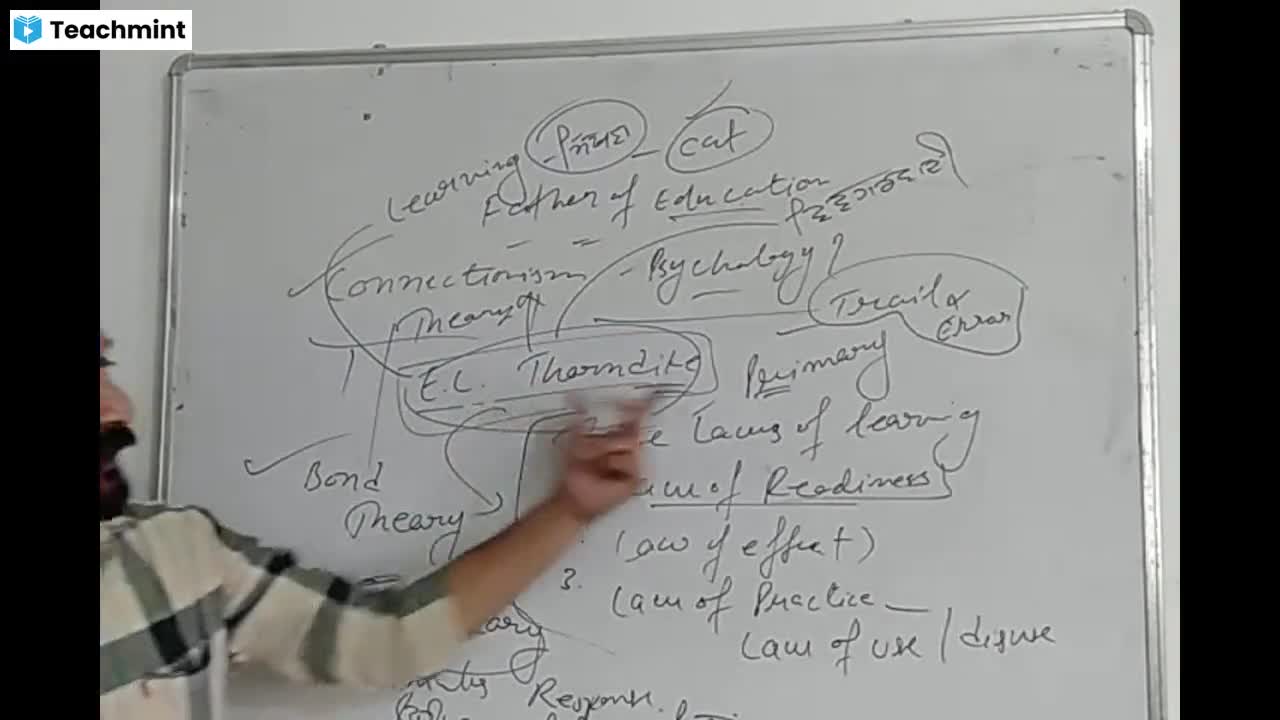 Teachmint
Learning - cat
Father of Education
Connectionism - Psychology?
Theory of Trail & Error
E.L. Thorndike Primary
Laws of learning
Bond Law of Readiness
Theory
Law of effect)
3. Law of Practice
Law of use / disuse
Response.